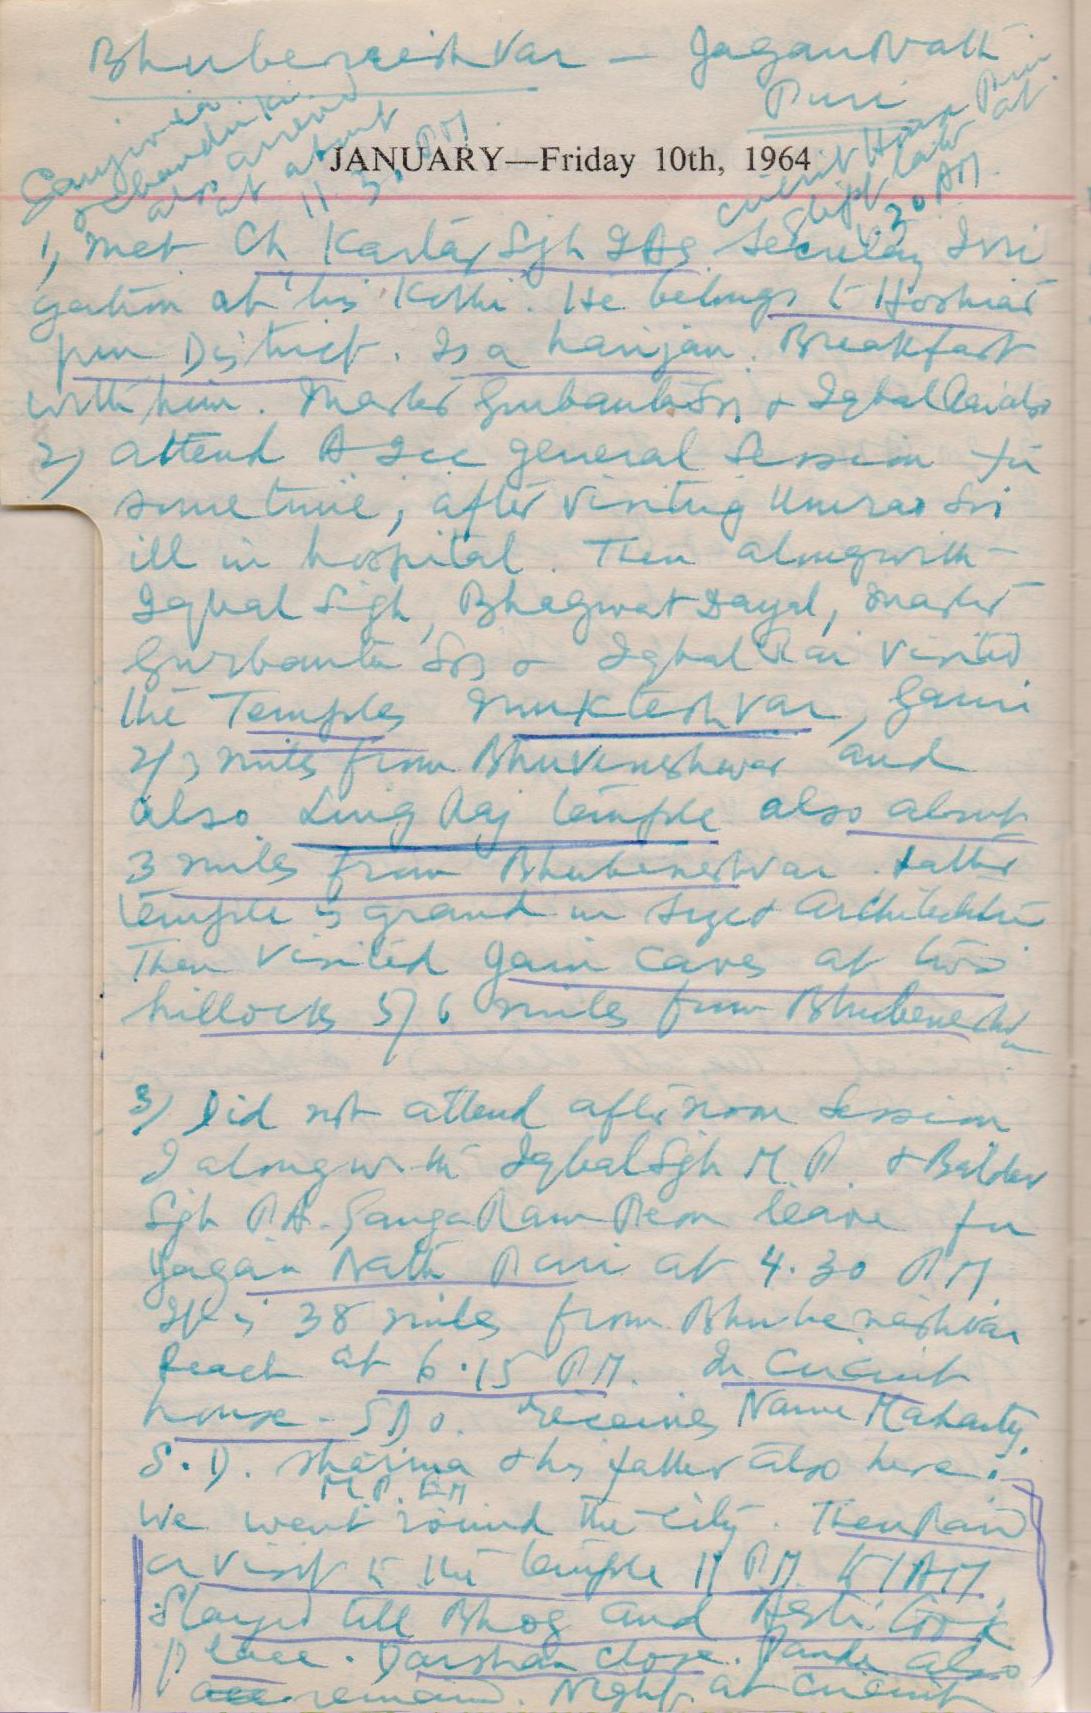 Bhubeneishvar — JaganNath
Puri
also arrived
at about
11.30 PM
Circuit House Puri
Slept late at
1.30 AM
JANUARY—Friday 10th, 1964
1, Met Ch Kartar Sgh IAS Secretary Irri
gation at his Kothi. He belongs to Hoshiar
pur District. Is a harijan. Breakfast
with him. Master Gurbanta Sn & Iqbal Rai also
2) attend AICC general Session for
sometime, after visiting Umrao Sn
ill in hospital. Then alongwith
Iqbal Sigh, Bhagwat Dayal, Master
Gurbanta Sn & Iqbal Rai visited
the Temples Mukteshvar, Gauri
2/3 miles from Bhuvineshwar and
also Ling Raj temple also about
3 miles from Bhubeneshvar. Latter
temple is grand in size & architecture
Then visited Jain caves at two
hillocks 5/6 miles from Bhubenesh
3) Did not attend afternoon Session
I alongwith Iqbal Sgh M.P. & Baldev
Sgh P.A. Ganga Ram Peon leave for
Jagan Nath Puri at 4.30 PM
It is 38 miles from Bhubeneshvar
Reach at 6.15 PM. In Circuit
house - SDO. receives Name Mahanty.
S.D. Sharma & his father also here.
M.P. EM
We went round the city. Then Paid
a visit to the temple 11 PM to 1 AM.
Stayed till Bhog and Arti took
place. Darshan close. Panda also
remain. Night at Circuit